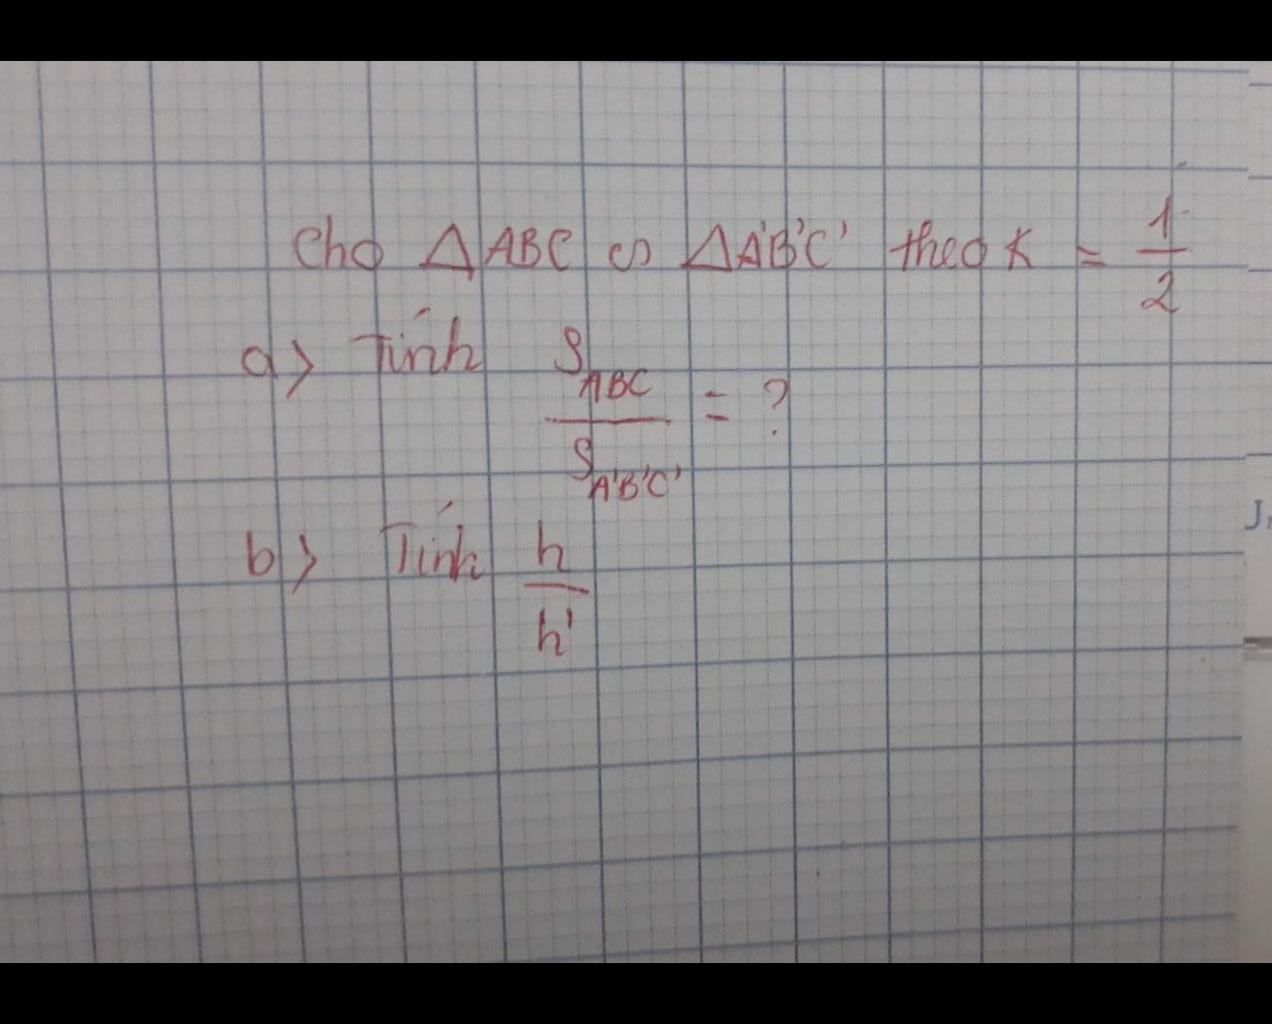 Cho △ABC ∽ △A'B'C' theo K = 1/2
a> Tính S_ABC / S_A'B'C' = ?
b> Tính h/h'